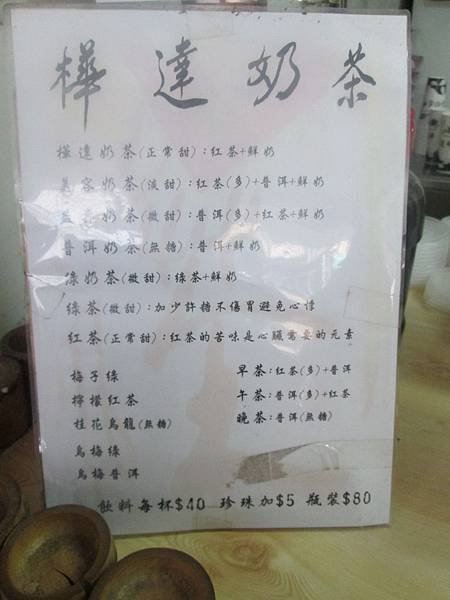 樺達奶茶
樺達奶茶(正常甜):紅茶+鮮奶
美容奶茶(淡甜):紅茶(多)+普洱+鮮奶
益壽奶茶(微甜):普洱(多)+紅茶+鮮奶
普洱奶茶(無糖):普洱+鮮奶
綠奶茶(微甜):綠茶+鮮奶
綠茶(微甜):加少許糖不傷胃避免心悸
紅茶(正常甜):紅茶的苦味是心臟需要的元素
梅子綠
檸檬紅茶
桂花烏龍(無糖)
烏梅綠
烏梅普洱
早茶:紅茶(多)+普洱
午茶:普洱(多)+紅茶
晚茶:普洱(無糖)
飲料每杯$40 珍珠加$5 瓶裝$80